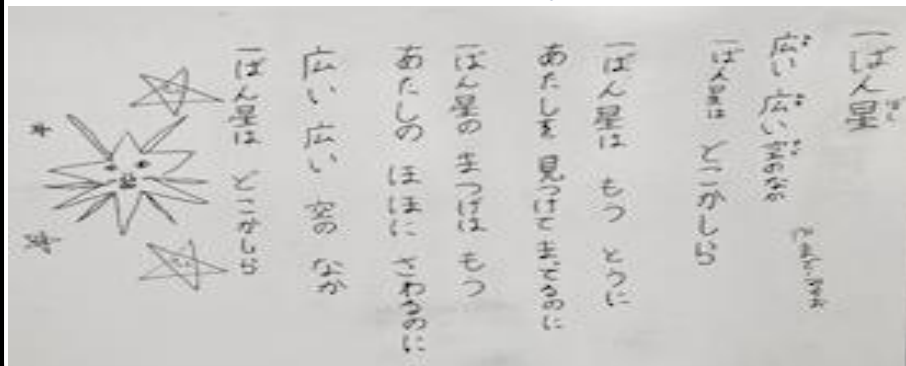 一ばん星
ぼし
広い 広い 空のなか
一ばん星は どこかしら
一ばん星は もう とうに
あたしを 見つけて まってるのに
一ばん星の まつげは もう
あたしの ほほに さわるのに
広い 広い 空の なか
一ばん星は どこかしら